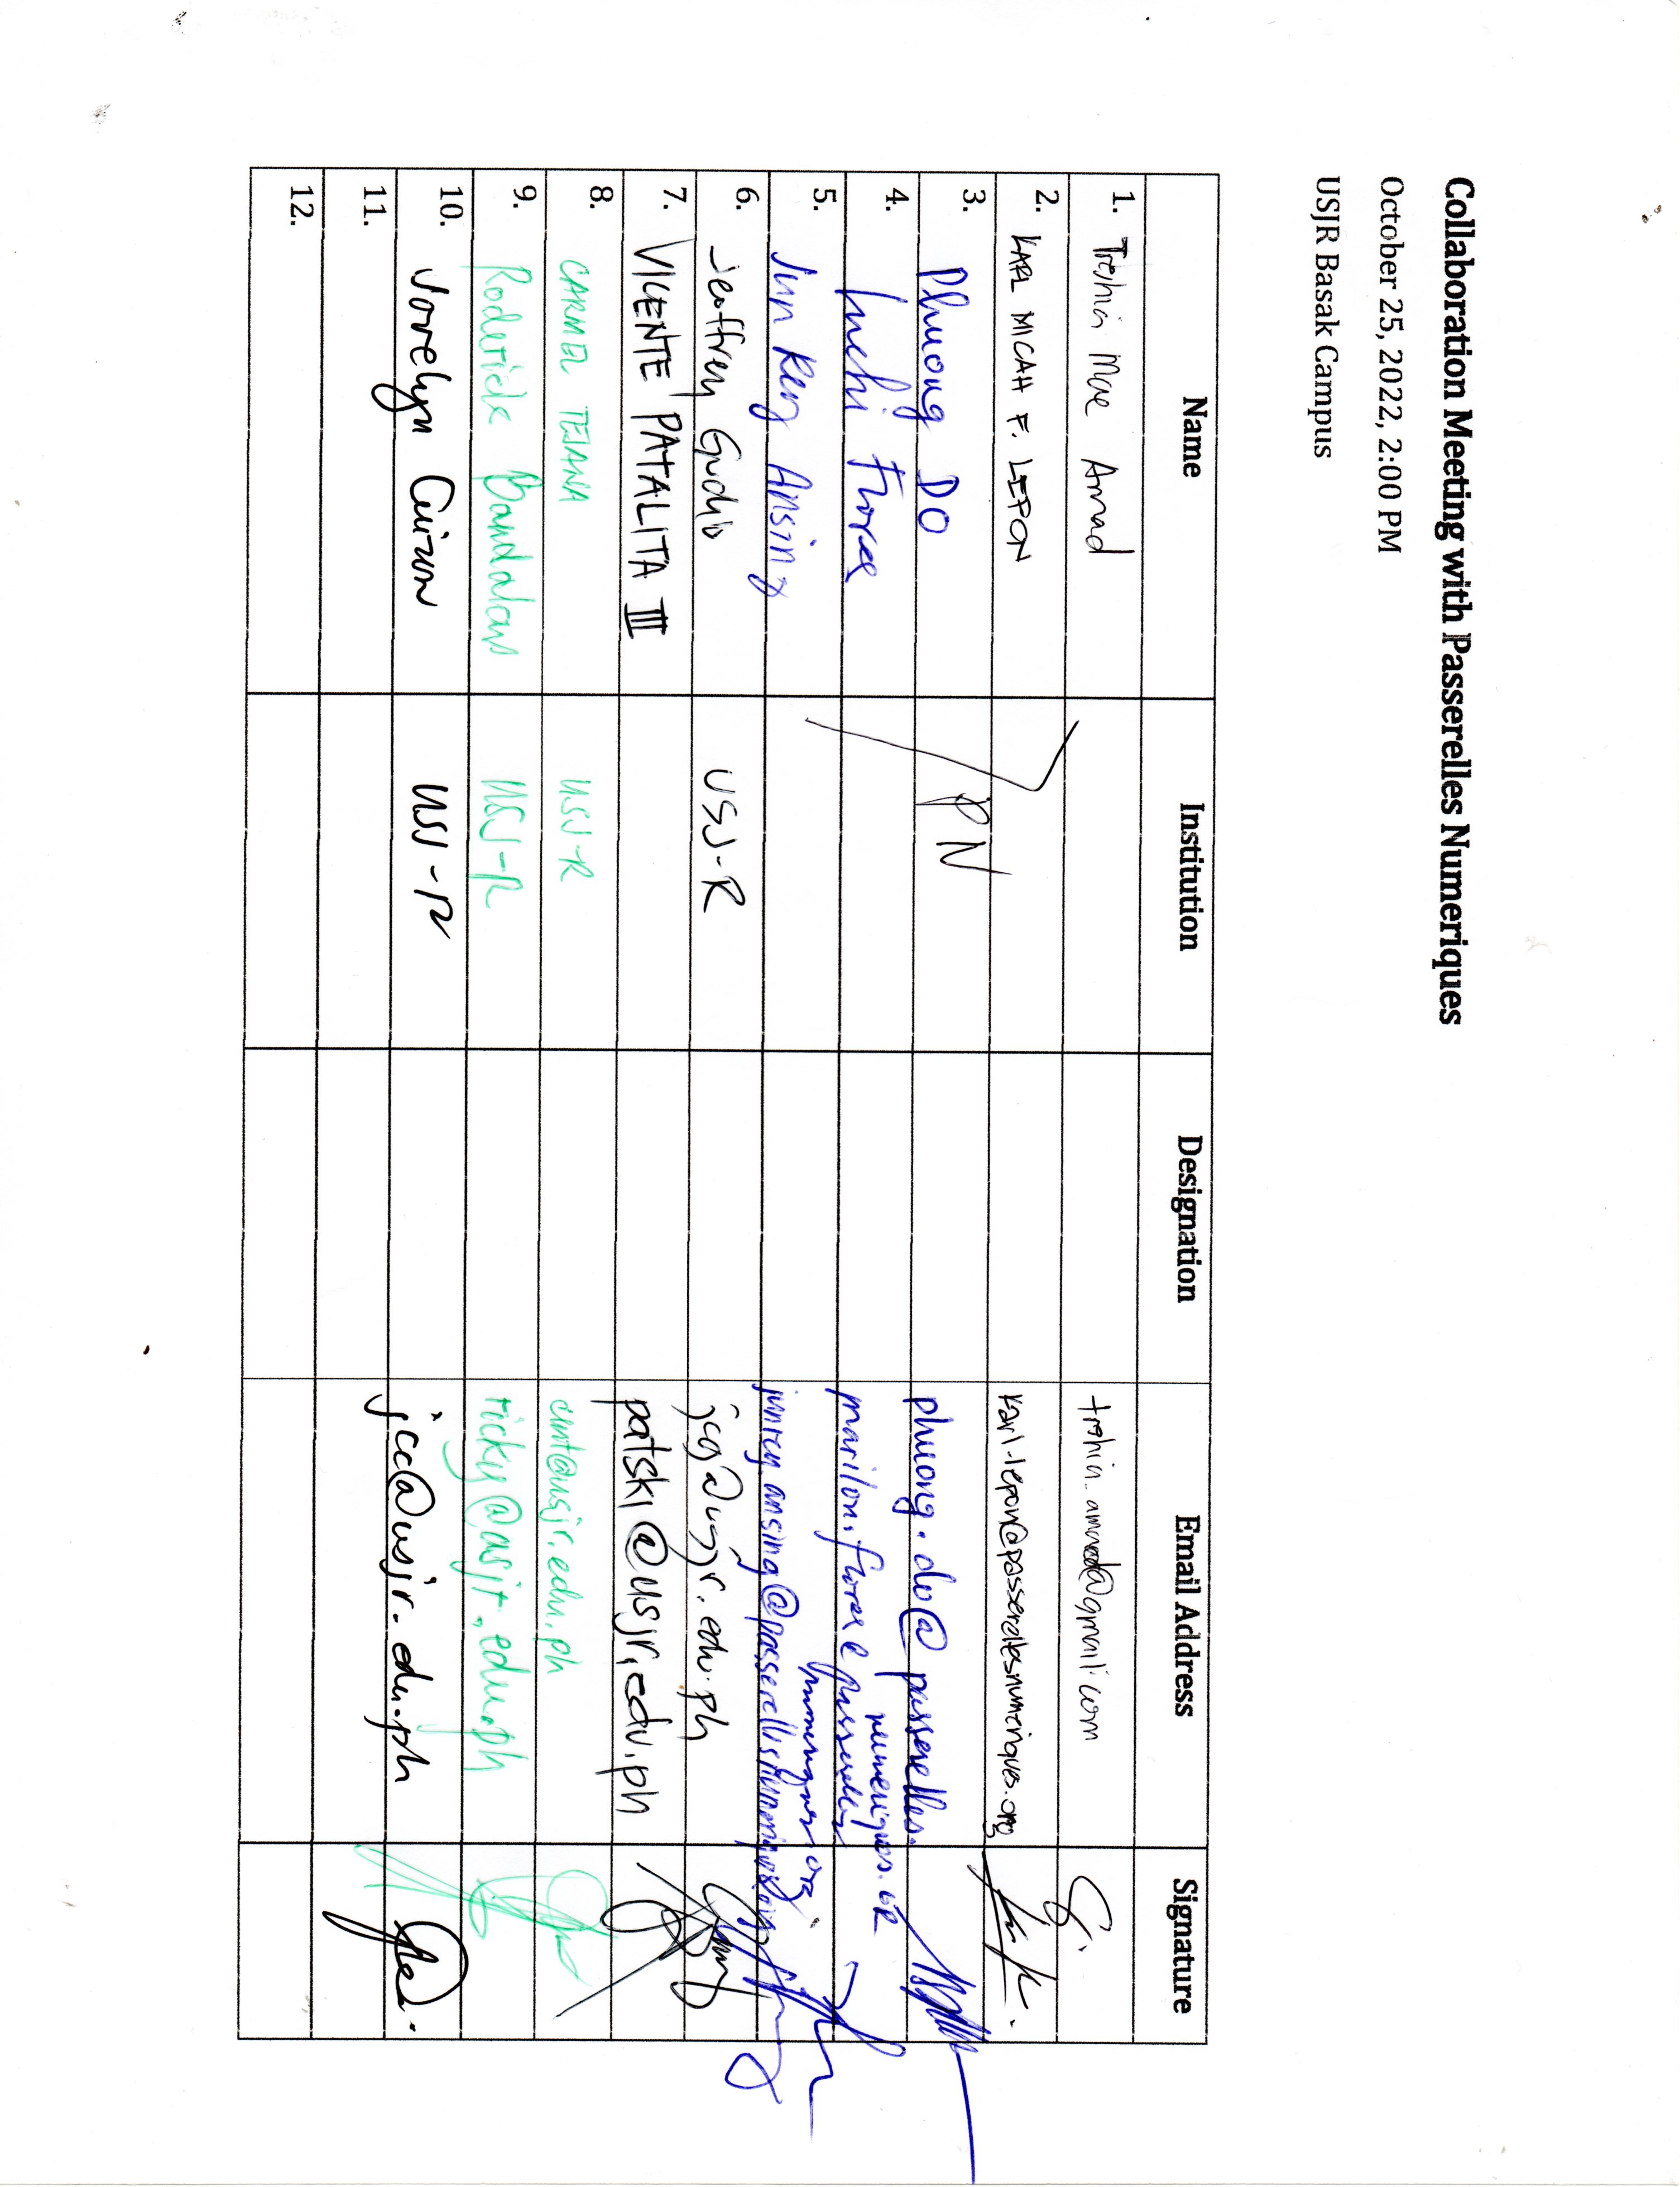 Collaboration Meeting with Passerelles Numeriques
October 25, 2022, 2:00 PM
USJR Basak Campus
Name Institution Designation Email Address Signature
1. Treshia Mae Amad @gmail.com
2. KARL MICAH F. LEPON karl.lepon@passerellesnumeriques.org
PN
3. Phuong DO phuong.do@passerelles.
numeriques.org
4. Luchi Flores marilou.flores@passerelles
numeriques.org
5. Jun Rey Ansing junrey.ansing@passerellesnumeriques.org
6. Jeoffrey Gudio USJ-R jcg@usjr.edu.ph
7. VICENTE PATALITA III patski@usjr.edu.ph
8. CARMEL TEJANA USJ-R cmt@usjr.edu.ph
9. Roderick Bandalan USJ-R ricky@usjr.edu.ph
10. Jovelyn Cuizon USJ-R jcc@usjr.edu.ph
11.
12.